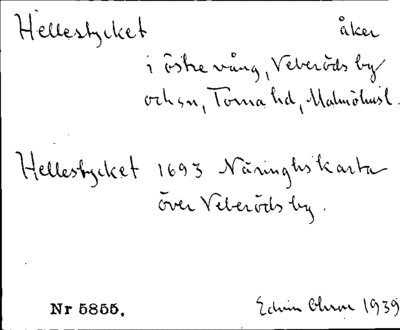 Hellestycket åker
i östre vång, Veberöds by
och sn, Torna hd, Malmöhusl.
Hellestycket 1693 Näringhs karta
över Veberöds by.
Nr 5855. Edvin Ohlson 1939